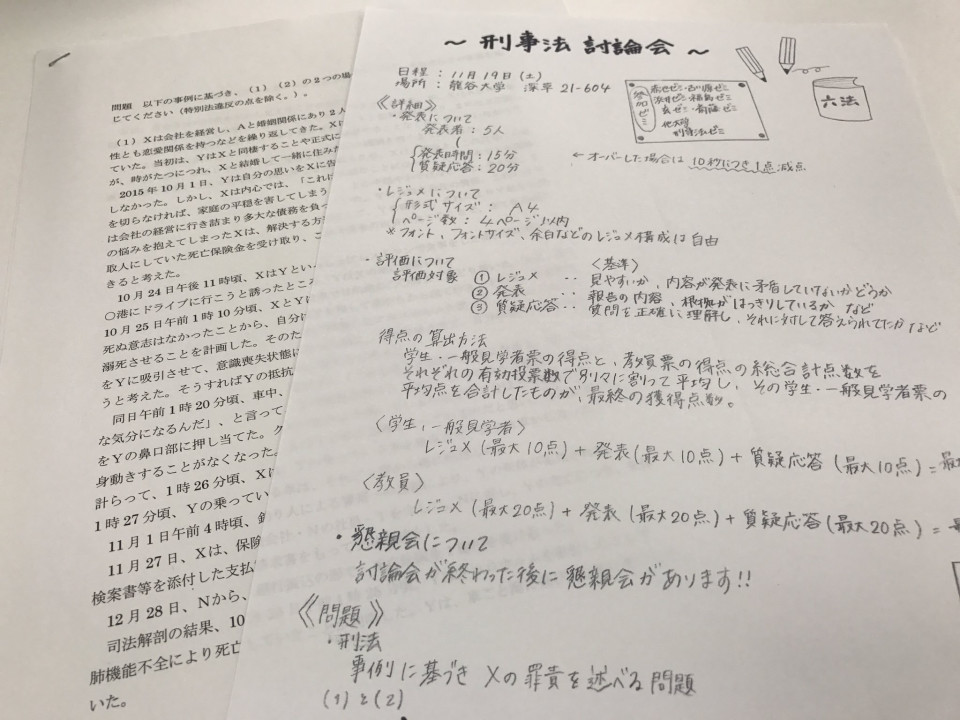 問題 以下の事例に基づき、(1)(2)の2つの場
じてください(特別法違反の点を除く。)。
(1)Xは会社を経営し、Aと婚姻関係にあり2人
性とも恋愛関係を持つなどを繰り返してきた。X
ていた。当初は、YはXと同棲することや正式に
が、時がたつにつれ、Xと結婚して一緒に住みた
2015年10月1日、Yは自分の思いをXに告
しなかった。しかし、Xは内心では、「これに
を切らなければ、家庭の平穏を害してしまう
は会社の経営に行き詰まり多大な債務を負っ
の悩みを抱えてしまったXは、解決する方
取人にしていた死亡保険金を受け取り、こ
きると考えた。
10月24日午後11時頃、XはYといっ
○港にドライブに行こうと誘ったところ
10月25日午前1時10分頃、XとYは
死ぬ意志はなかったことから、自分
溺死させることを計画した。そのた
をYに吸引させて、意識喪失状態に
うと考えた。そうすればYの抵抗
同日午前1時20分頃、車中、
な気分になるんだ」、と言って
をYの鼻口部に押し当てた。ク
身動きすることがなくなった。
計らって、1時26分頃、X
1時27分頃、Yの乗ってい
11月1日午前4時頃、
11月27日、Xは、保険
検案書等を添付した支払
12月28日、Nから、
司法解剖の結果、10
肺機能不全により死亡
いた。
~ 刑事法 討論会 ~
日程:11月19日(土)
場所:龍谷大学 深草 21-604
参加ゼミ
他大学
刑事法ゼミ
六法
《詳細》
・発表について
発表者:5人
発表時間:15分
質疑応答:20分
←オーバーした場合は10秒につき1点減点
・レジュメについて
形式サイズ:A4
ページ数:4ページ以内
※フォント、フォントサイズ、余白などのレジュメ構成は自由
・評価について
〈基準〉
評価対象 ① レジュメ ‥ 見やすいか、内容が発表に矛盾していないかどうか
② 発表 ‥ 報告の内容、根拠がはっきりしているか など
③ 質疑応答 ‥ 質問を正確に理解し、それに対して答えられてたか など
得点の算出方法
学生・一般見学者票の得点と、教員票の得点の総合計点数を
それぞれの有効投票数で別々に割って平均し、その学生・一般見学者票の
平均点を合計したものが、最終の獲得点数。
〈学生、一般見学者〉
レジュメ(最大10点)+ 発表(最大10点)+ 質疑応答(最大10点)=最
〈教員〉
レジュメ(最大20点)+ 発表(最大20点)+ 質疑応答(最大20点)=
・懇親会について
討論会が終わった後に懇親会があります!!
《問題》
・刑法
事例に基づき Xの罪責を述べる問題
(1)と(2)